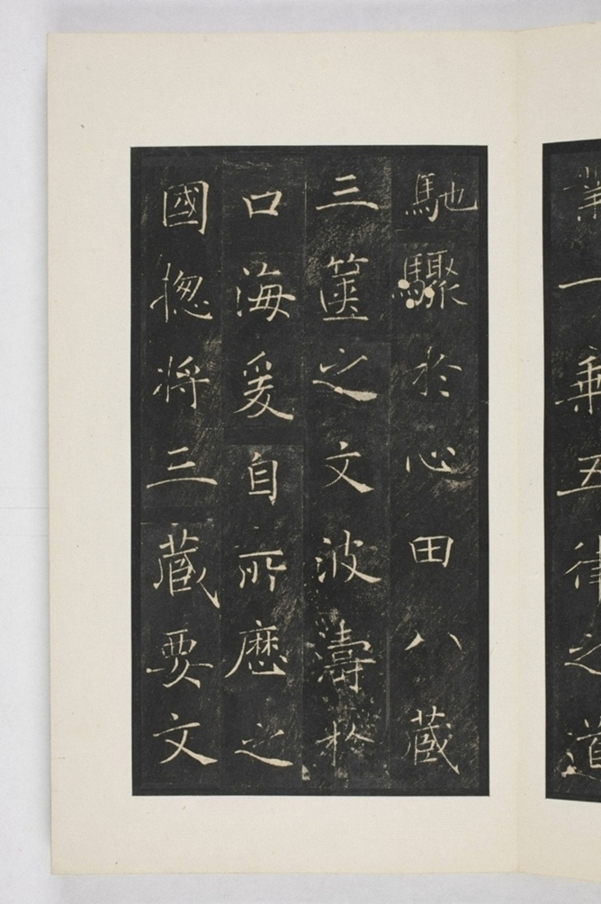 業一乘五律之道
馳驟於心田八藏
三篋之文波濤於
口海爰自所歷之
國揔將三藏要文